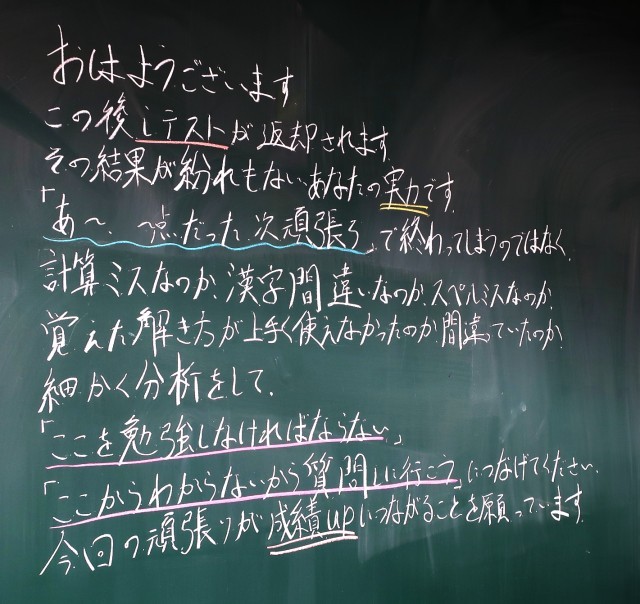 おはようございます
この後iテストが返却されます。
その結果が紛れもないあなたの実力です。
「あ〜、〜点だった、次頑張ろ」で終わってしまうのではなく、
計算ミスなのか、漢字間違いなのか、スペルミスなのか、
覚えた解き方が上手く使えなかったのか、間違っていたのか、
細かく分析をして、
「ここを勉強しなければならない」
「ここからわからないから質問しに行こう」につなげてください。
今回の頑張りが成績upにつながることを願っています。